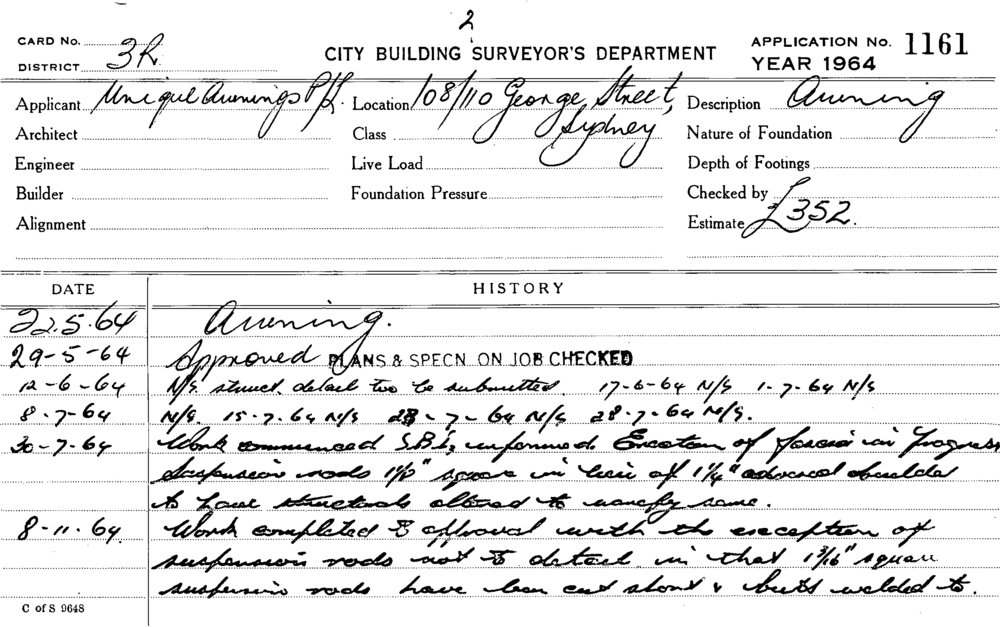 2
CARD No.
DISTRICT 3R
CITY BUILDING SURVEYOR'S DEPARTMENT
APPLICATION No. 1161
YEAR 1964
Applicant Unique Awnings P/L.
Location 108/110 George Street, Sydney
Description Awning
Architect
Class
Nature of Foundation
Engineer
Live Load
Depth of Footings
Builder
Foundation Pressure
Checked by
Alignment
Estimate £352.
DATE
HISTORY
22.5.64 Awning.
29-5-64 Approved PLANS & SPECN. ON JOB CHECKED
12-6-64 N/S. struct. detail two be submitted. 17-6-64 N/S 1-7-64 N/S
8-7-64 N/S. 15-7-64 N/S 28-7-64 N/S.
30-7-64 Work commenced S.B.I. informed. Erection of fascia in Progress
suspension rods square in lieu of 1¼" advised builder
to have structurals altered to same.
8-11-64. Work completed to approval with the exception of
suspension rods not to detail in that 1 3/16" square
suspension rods have been cut short & butt welded to.
C of S 9648